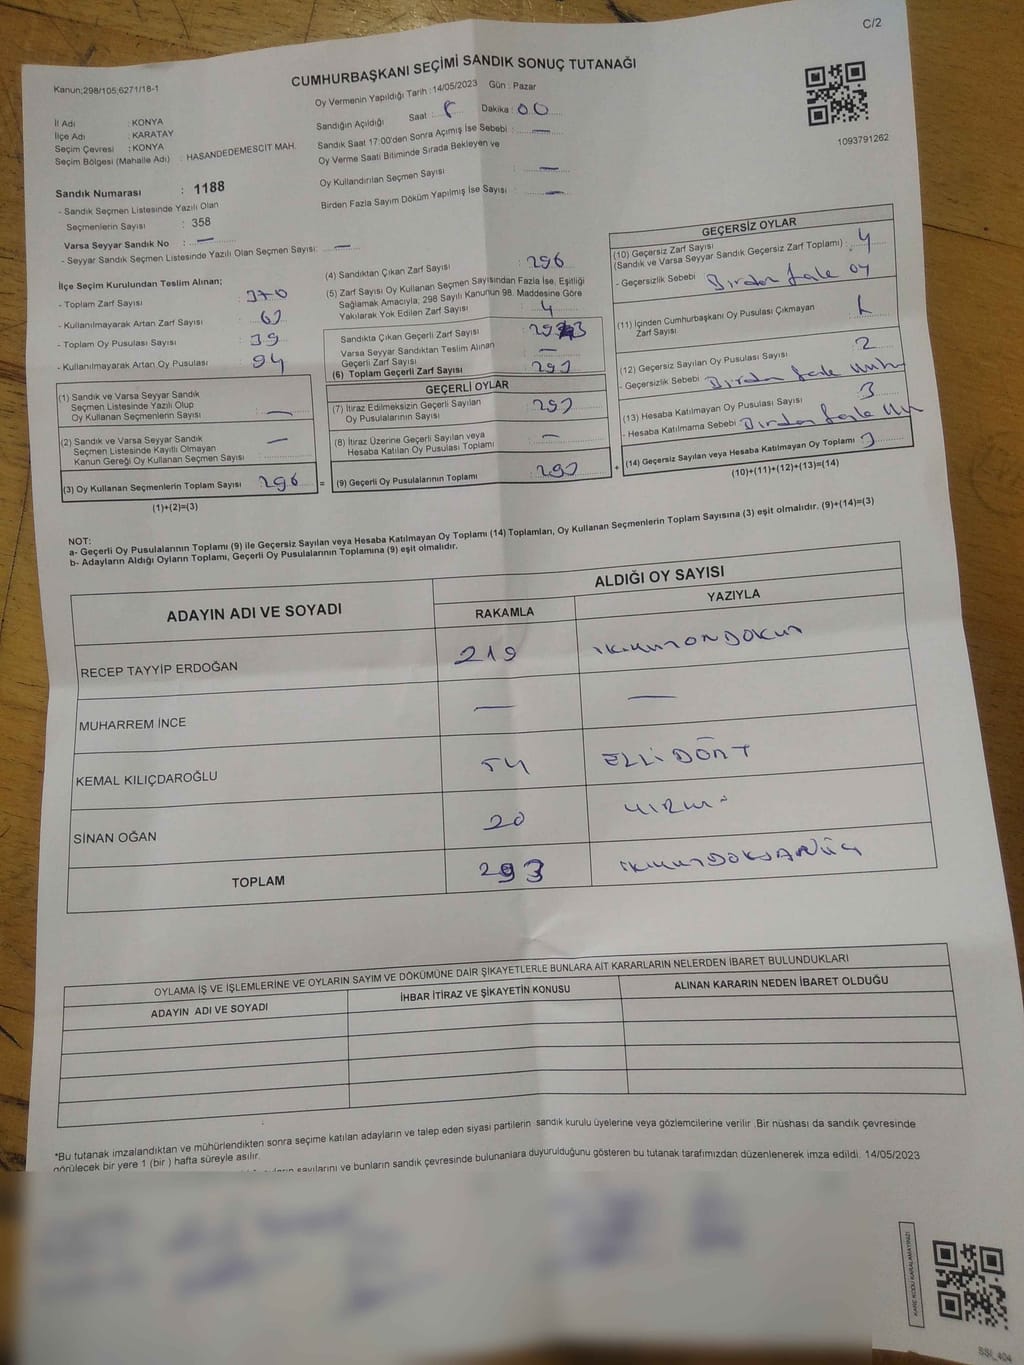 C/2
Kanun;298/105;6271/18-1
CUMHURBAŞKANI SEÇİMİ SANDIK SONUÇ TUTANAĞI
Oy Vermenin Yapıldığı Tarih : 14/05/2023 Gün : Pazar
İl Adı : KONYA
İlçe Adı : KARATAY
Seçim Çevresi : KONYA
Seçim Bölgesi (Mahalle Adı) : HASANDEDEMESCİT MAH.
Sandığın Açıldığı Saat : 8 Dakika : 00
Sandık Saat 17:00'den Sonra Açımış İse Sebebi : —
Oy Verme Saati Bitiminde Sırada Bekleyen ve
Oy Kullandırılan Seçmen Sayısı : —
Birden Fazla Sayım Döküm Yapılmış İse Sayısı : —
1093791262
Sandık Numarası : 1188
- Sandık Seçmen Listesinde Yazılı Olan
Seçmenlerin Sayısı : 358
Varsa Seyyar Sandık No : —
- Seyyar Sandık Seçmen Listesinde Yazılı Olan Seçmen Sayısı: —
İlçe Seçim Kurulundan Teslim Alınan;
- Toplam Zarf Sayısı : 370
- Kullanılmayarak Artan Zarf Sayısı :
- Toplam Oy Pusulası Sayısı :
- Kullanılmayarak Artan Oy Pusulası : 94
(1) Sandık ve Varsa Seyyar Sandık
Seçmen Listesinde Yazılı Olup
Oy Kullanan Seçmenlerin Sayısı : —
(2) Sandık ve Varsa Seyyar Sandık
Seçmen Listesinde Kayıtlı Olmayan
Kanun Gereği Oy Kullanan Seçmen Sayısı : —
(3) Oy Kullanan Seçmenlerin Toplam Sayısı : 296 =
(1)+(2)=(3)
(4) Sandıktan Çıkan Zarf Sayısı : 296
(5) Zarf Sayısı Oy Kullanan Seçmen Sayısından Fazla İse, Eşitliği
Sağlamak Amacıyla; 298 Sayılı Kanunun 98. Maddesine Göre
Yakılarak Yok Edilen Zarf Sayısı : 4
Sandıkta Çıkan Geçerli Zarf Sayısı :
Varsa Seyyar Sandıktan Teslim Alınan
Geçerli Zarf Sayısı : —
(6) Toplam Geçerli Zarf Sayısı : 293
GEÇERLİ OYLAR
(7) İtiraz Edilmeksizin Geçerli Sayılan
Oy Pusulalarının Sayısı : 293
(8) İtiraz Üzerine Geçerli Sayılan veya
Hesaba Katılan Oy Pusulası Toplamı : —
(9) Geçerli Oy Pusulalarının Toplamı : 293 +
GEÇERSİZ OYLAR
(10) Geçersiz Zarf Sayısı
(Sandık ve Varsa Seyyar Sandık Geçersiz Zarf Toplamı) : 4
- Geçersizlik Sebebi : Birden fazle oy
(11) İçinden Cumhurbaşkanı Oy Pusulası Çıkmayan
Zarf Sayısı :
(12) Geçersiz Sayılan Oy Pusulası Sayısı : 2
- Geçersizlik Sebebi : Birden fazle
(13) Hesaba Katılmayan Oy Pusulası Sayısı : 3
- Hesaba Katılmama Sebebi : Birden fazle
(14) Geçersiz Sayılan veya Hesaba Katılmayan Oy Toplamı : 3
(10)+(11)+(12)+(13)=(14)
NOT:
a- Geçerli Oy Pusulalarının Toplamı (9) ile Geçersiz Sayılan veya Hesaba Katılmayan Oy Toplamı (14) Toplamları, Oy Kullanan Seçmenlerin Toplam Sayısına (3) eşit olmalıdır. (9)+(14)=(3)
b- Adayların Aldığı Oyların Toplamı, Geçerli Oy Pusulalarının Toplamına (9) eşit olmalıdır.
ADAYIN ADI VE SOYADI
ALDIĞI OY SAYISI
RAKAMLA YAZIYLA
RECEP TAYYİP ERDOĞAN 219
MUHARREM İNCE — —
KEMAL KILIÇDAROĞLU 54 ELLİDÖRT
SİNAN OĞAN 20 YİRMİ
TOPLAM 293
OYLAMA İŞ VE İŞLEMLERİNE VE OYLARIN SAYIM VE DÖKÜMÜNE DAİR ŞİKAYETLERLE BUNLARA AİT KARARLARIN NELERDEN İBARET BULUNDUKLARI
ADAYIN ADI VE SOYADI İHBAR İTİRAZ VE ŞİKAYETİN KONUSU ALINAN KARARIN NEDEN İBARET OLDUĞU
*Bu tutanak imzalandıktan ve mühürlendikten sonra seçime katılan adayların ve talep eden siyasi partilerin sandık kurulu üyelerine veya gözlemcilerine verilir .Bir nüshası da sandık çevresinde
görülecek bir yere 1 (bir ) hafta süreyle asılır.
sayılarını ve bunların sandık çevresinde bulunanlara duyurulduğunu gösteren bu tutanak tarafımızdan düzenlenerek imza edildi. 14/05/2023
KARE KODU KARALAMAYINIZ!
SSI_404